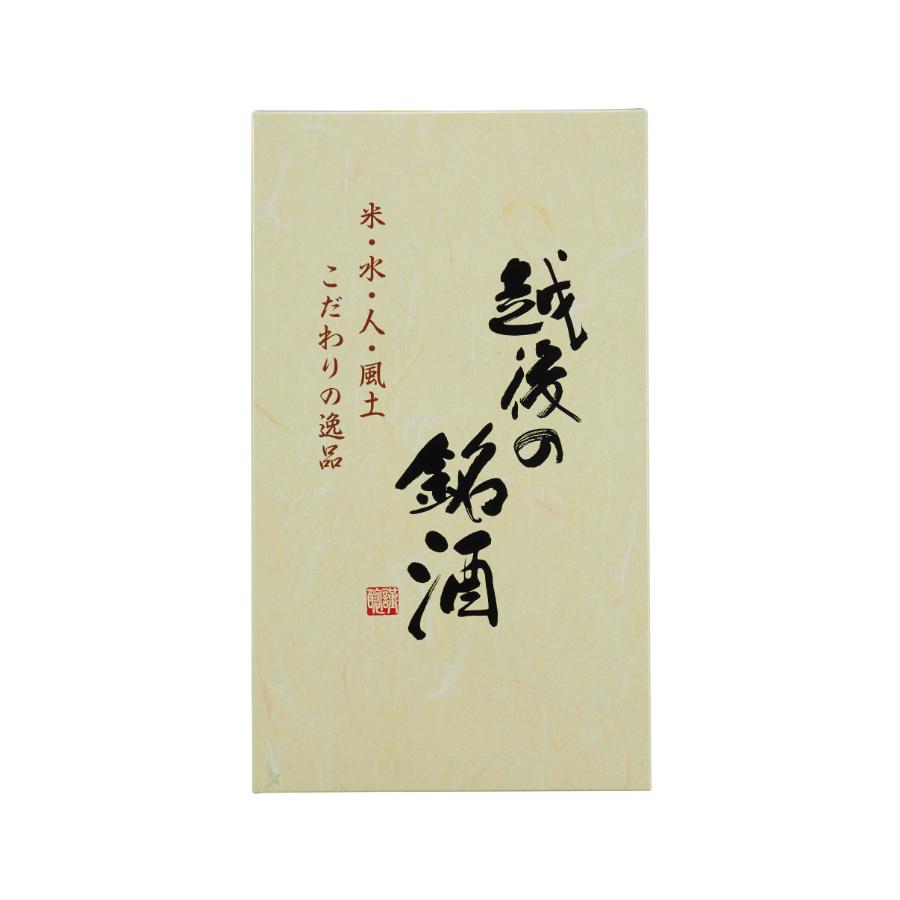 越後の
銘酒
米・水・人・風土
こだわりの逸品
謹醸